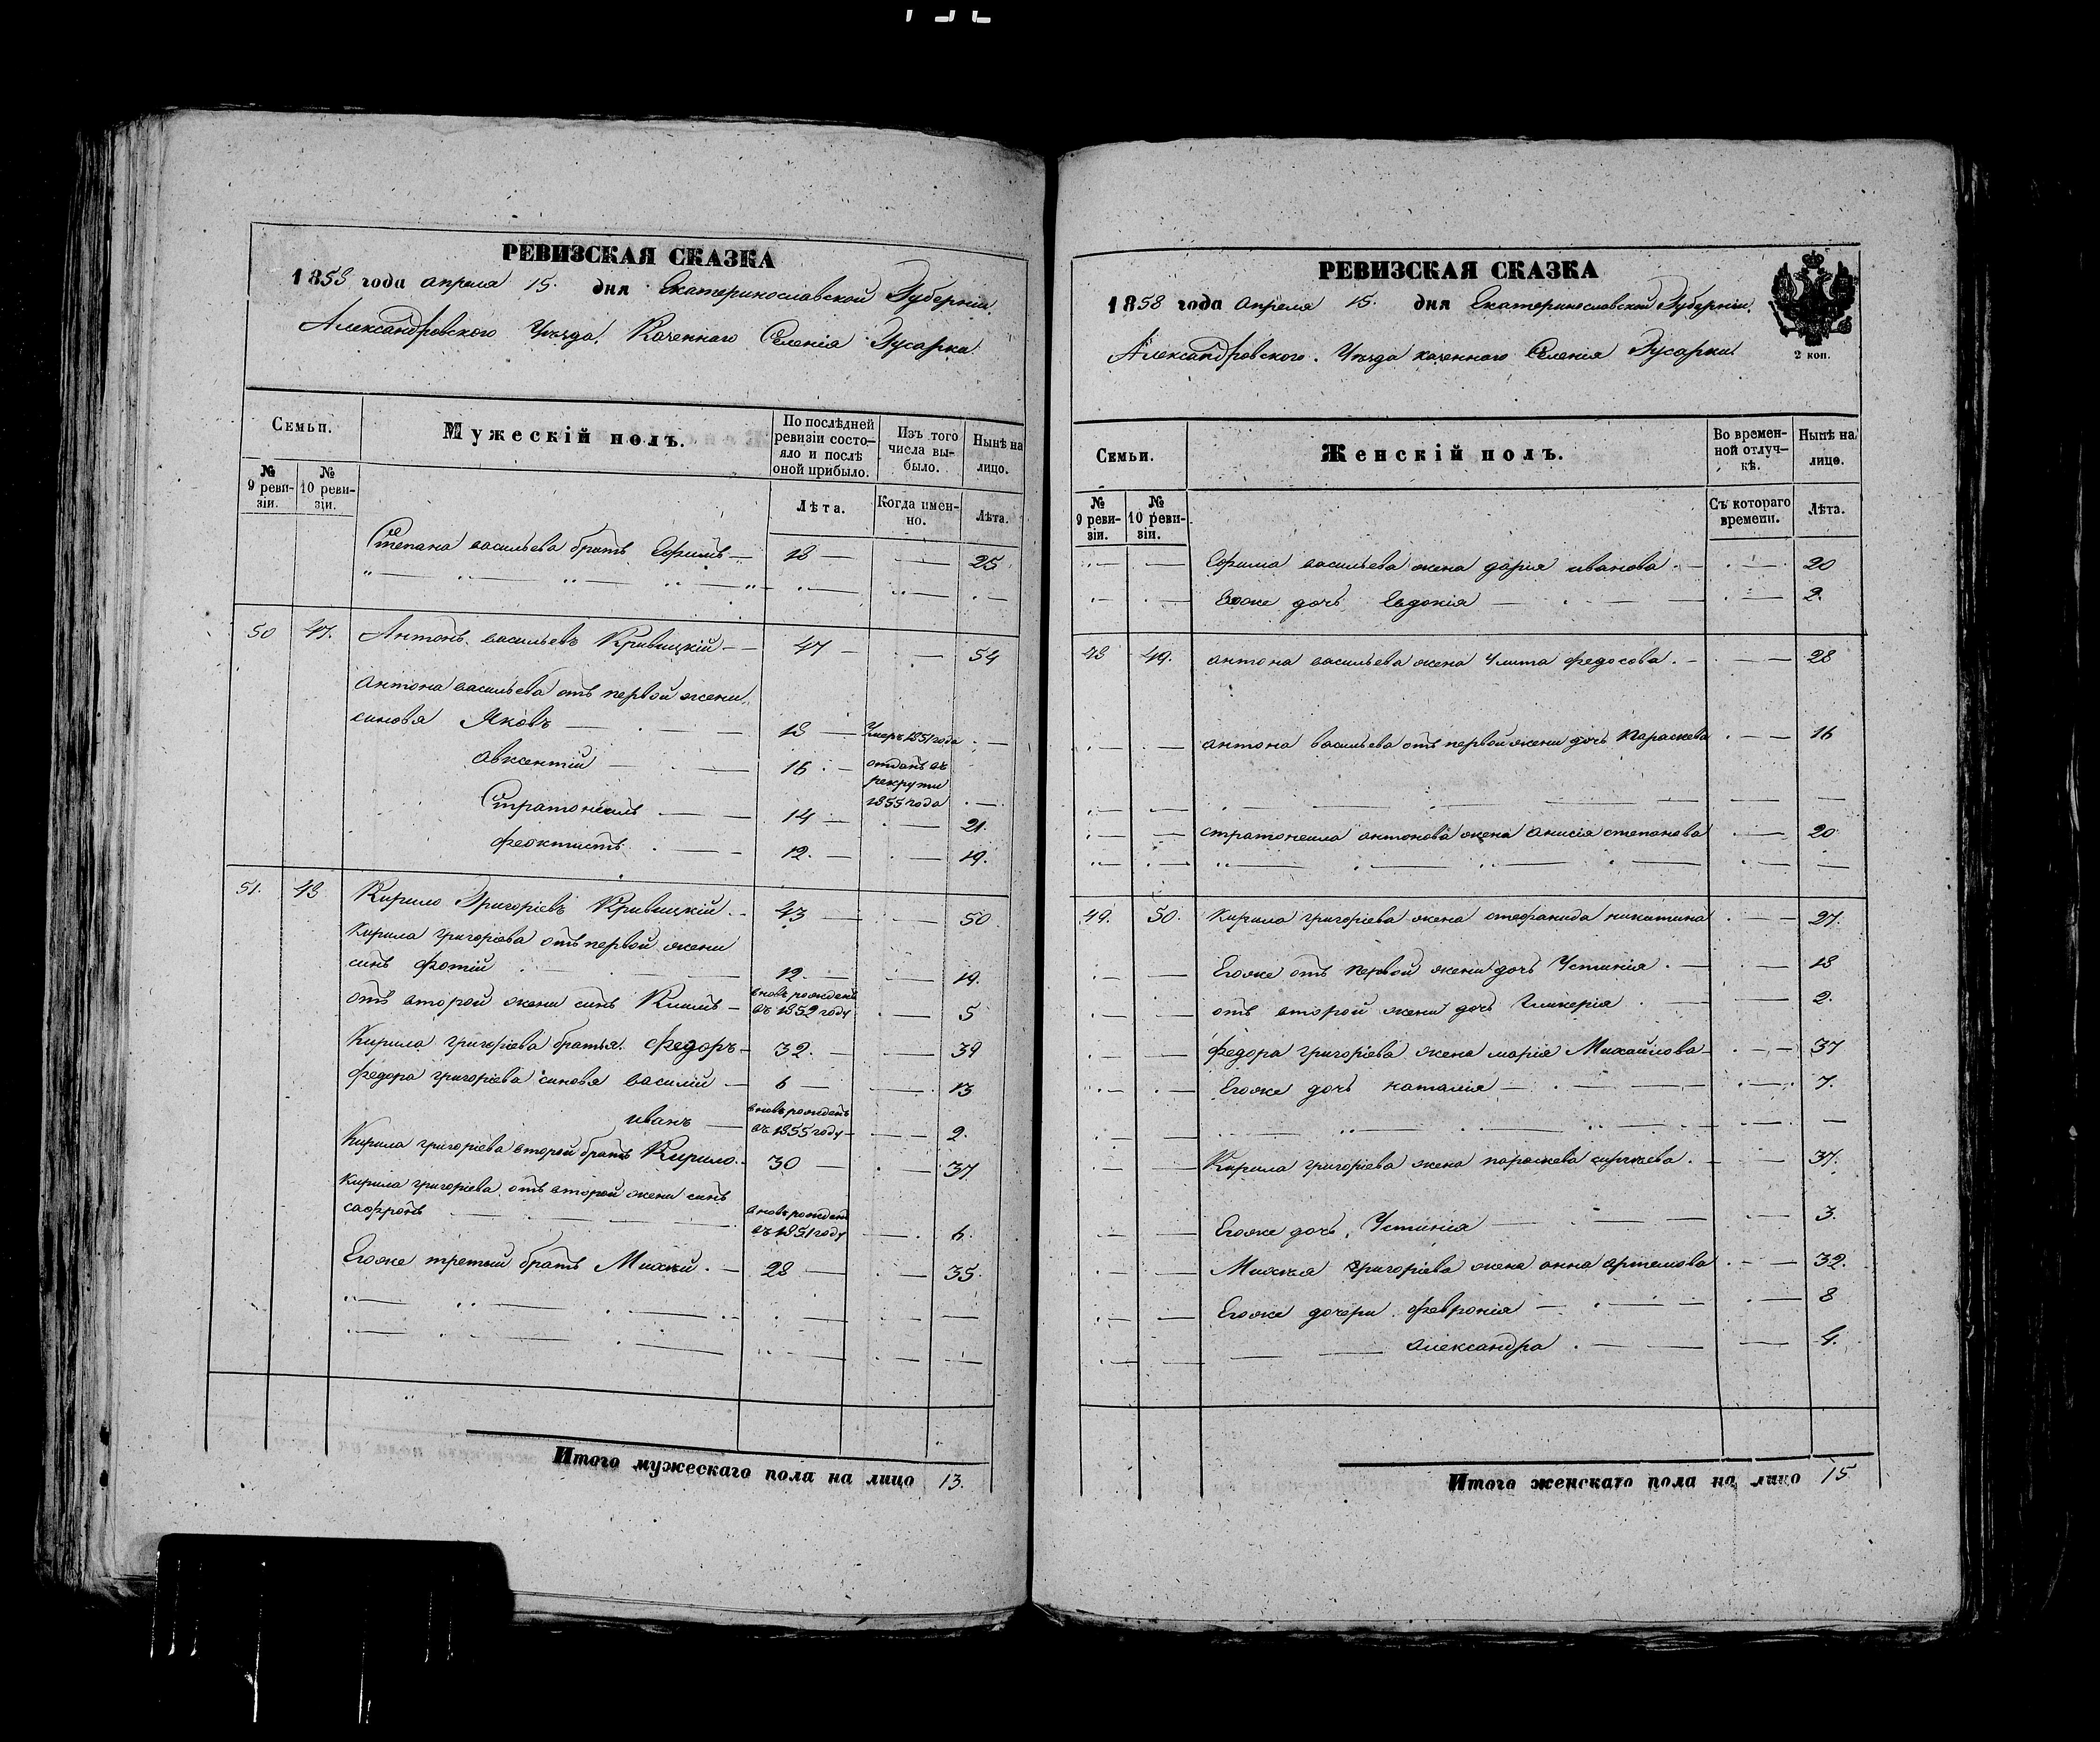 РЕВИЗСКАЯ СКАЗКА
1858 года апреля 15. дня Екатеринославской Губерніи.
Александровского Уѣзда, Казенного Селенія Гусарки
Семьи.
Мужескій полъ.
По послѣдней ревизіи состояло и послѣ оной прибыло.
Изъ того числа выбыло.
Нынѣ на лицо.
№ 9 ревизіи.
№ 10 ревизіи.
Лѣта.
Когда именно.
Лѣта.
Степана васильева братъ Ефимъ — 18 — — 25
50 47. Антонъ васильевъ Кривицкій — 47 — — 54
Антона васильева отъ первой жени
синовя Яковъ — 18 — Умеръ 1851 года —
Авксентій — 16 — отданъ въ рекруты 1855 года —
Стратонетъ — 14 — — 21.
Феоктистъ — 12. — — 19.
51. 48 Кирило Григоріевъ Кривицкій — 43 — — 50
Кирила григоріева отъ первой жени
синъ Фотій — 12 — — 19.
отъ второй жени синъ Климъ — вновь рожденъ въ 1852 году — 5
Кирила григоріева братья Федоръ — 32. — — 39
Федора григоріева синовя василій — 6 — — 13
иванъ — вновь рожденъ въ 1855 году — 2.
Кирила григоріева второй братъ Кирило — 30 — — 37
Кирила григоріева отъ второй жени синъ
сафронъ — вновь рожденъ въ 1851 году — 6.
Егоже третий братъ Михей — 28 — — 35.
Итого мужескаго пола на лицо 13.
РЕВИЗСКАЯ СКАЗКА
1858 года апреля 15. дня Екатеринославской Губерніи.
Александровского Уѣзда казенного Селенія Гусарки
2 коп.
Семьи.
Женскій полъ.
Во временной отлучкѣ.
Нынѣ на лицо.
№ 9 ревизіи.
№ 10 ревизіи.
Съ котораго времени.
Лѣта.
Ефима васильева жена дарія иванова — — 20
Егоже дочь Евдокія — — 2.
48 49. антона васильева жена Улита федосова — — 28
антона васильева отъ первой жени дочь Параскева — 16
стратонета антонова жена анисія степанова — 20
49. 50. Кирила григоріева жена стефанида никитина — 27.
Егоже отъ первой жени дочь Устинія — — 18
отъ второй жени дочь Гликерія — — 2.
Федора григоріева жена марія Михайлова — — 37
Егоже дочь наталія — — 7.
Кирила григоріева жена параскева сиргиева — — 37.
Егоже дочь, Устинія — — 3.
Михея григоріева жена анна артемова — — 32.
Егоже дочери февронія — — 8
александра — — 4.
Итого женскаго пола на лицо 15